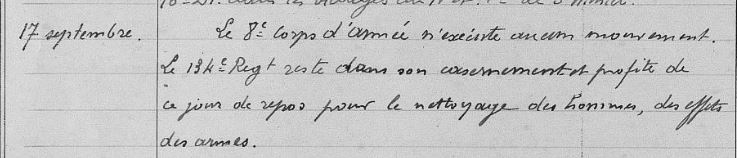 17 septembre. Le 8e Corps d'armée n'exécute aucun mouvement.
Le 134e Regt reste dans son casernement et profite de
ce jour de repos pour le nettoyage des hommes, des effets
des armes.